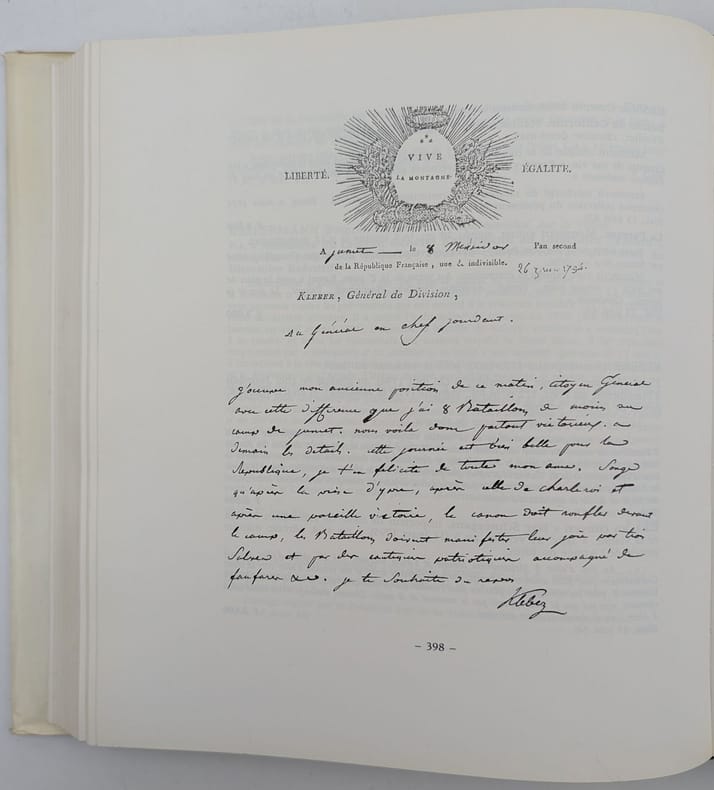 VIVE
LA MONTAGNE.
LIBERTÉ.
ÉGALITE.
A jumet — le 8 Messidor l'an second
de la République Française, une & indivisible.
26 juin 1794.
KLEBER, Général de Division,
au Général en chef jourdant.
j'occupe mon ancienne position de ce matin, citoyen Général
avec cette différence que j'ai 8 Bataillons de moins au
camp de jumet. nous voila donc partout victorieux. a
demain les details. cette journée est bien belle pour la
République, je t'en felicite de toute mon ame. Songe
qu'après la prise d'ypre, après celle de charleroi et
après une pareille victoire, le canon doit ronfler devant
le camp, les Bataillons doivent manifester leur joie par trois
Salves et par des cantiques patriotiques accompagné de
fanfares &c. je te Souhaite du repos
Kleber
– 398 –